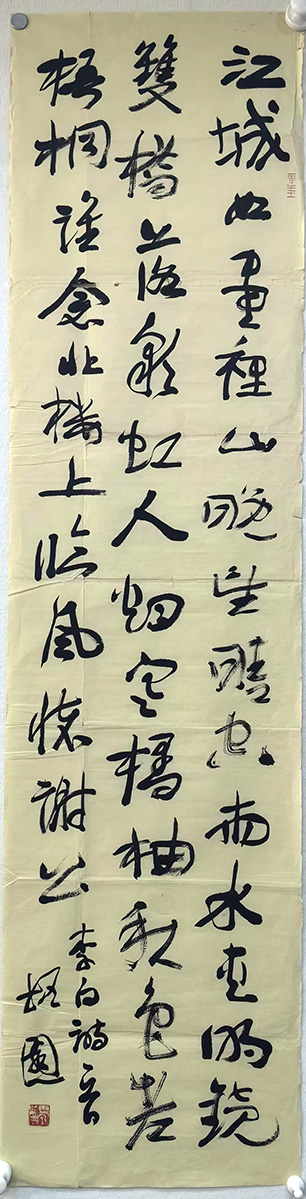 江城如畫裡山晚望晴空兩水夾明鏡
雙橋落彩虹人烟寒橘柚秋色老
梧桐誰念北樓上臨風懷謝公
李白詩
園